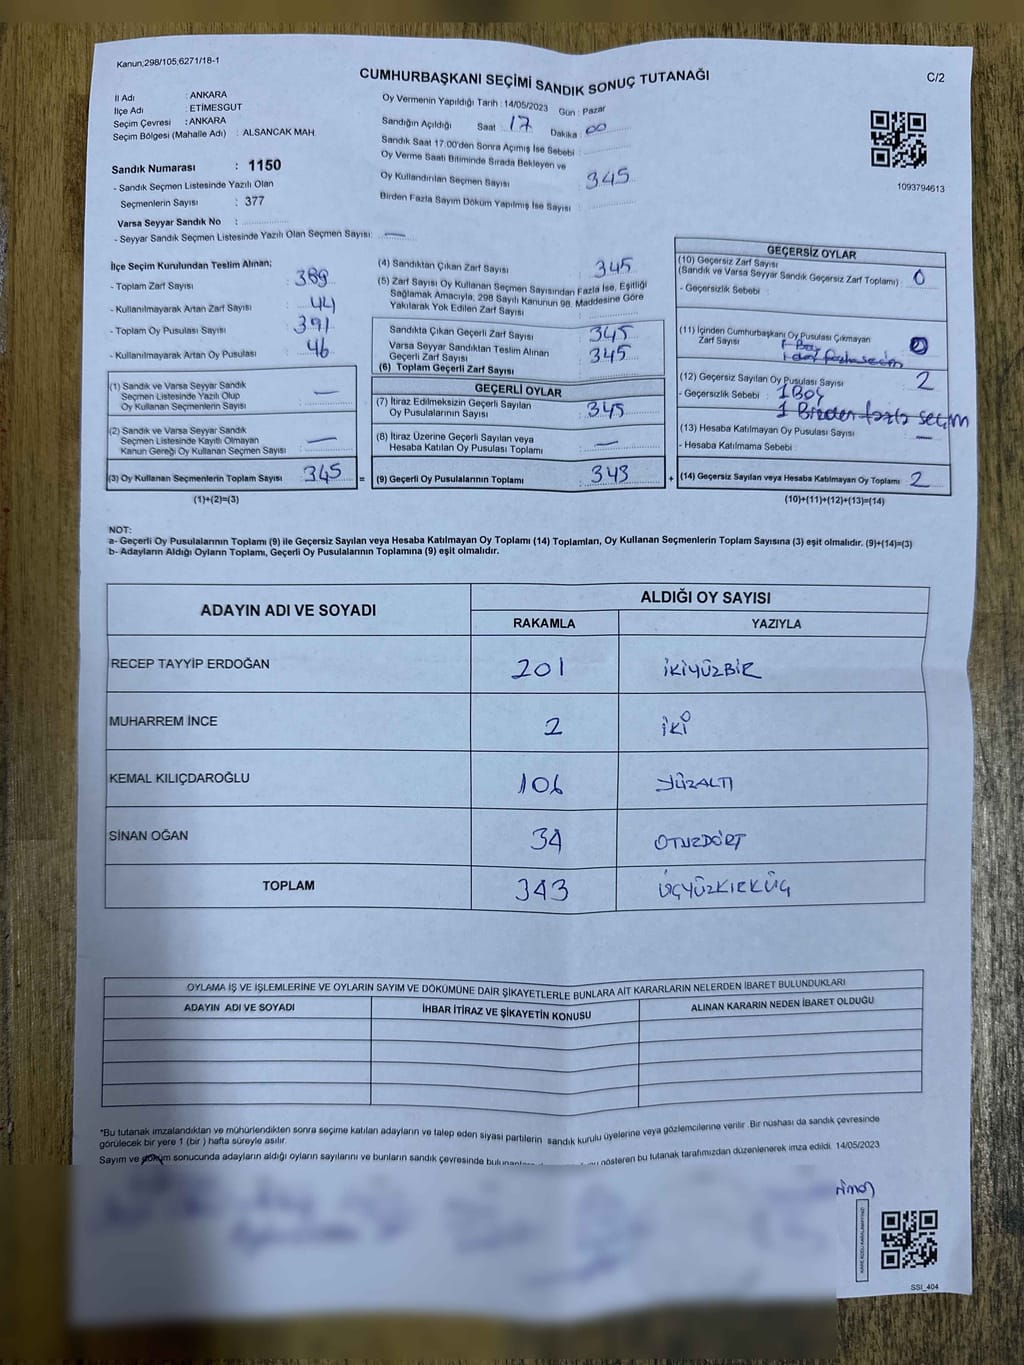 Kanun,298/105,6271/18-1
CUMHURBAŞKANI SEÇİMİ SANDIK SONUÇ TUTANAĞI
C/2
İl Adı : ANKARA
İlçe Adı : ETİMESGUT
Seçim Çevresi : ANKARA
Seçim Bölgesi (Mahalle Adı) : ALSANCAK MAH.
Sandık Numarası : 1150
- Sandık Seçmen Listesinde Yazılı Olan
Seçmenlerin Sayısı : 377
Varsa Seyyar Sandık No :
- Seyyar Sandık Seçmen Listesinde Yazılı Olan Seçmen Sayısı: —
Oy Vermenin Yapıldığı Tarih : 14/05/2023 Gün : Pazar
Sandığın Açıldığı Saat : 17 Dakika : 00
Sandık Saat 17:00'den Sonra Açımış İse Sebebi :
Oy Verme Saati Bitiminde Sırada Bekleyen ve
Oy Kullandırılan Seçmen Sayısı : 345
Birden Fazla Sayım Döküm Yapılmış İse Sayısı :
1093794613
İlçe Seçim Kurulundan Teslim Alınan;
- Toplam Zarf Sayısı : 389
- Kullanılmayarak Artan Zarf Sayısı : 44
- Toplam Oy Pusulası Sayısı : 391
- Kullanılmayarak Artan Oy Pusulası : 46
(1) Sandık ve Varsa Seyyar Sandık
Seçmen Listesinde Yazılı Olup
Oy Kullanan Seçmenlerin Sayısı : —
(2) Sandık ve Varsa Seyyar Sandık
Seçmen Listesinde Kayıtlı Olmayan
Kanun Gereği Oy Kullanan Seçmen Sayısı : —
(3) Oy Kullanan Seçmenlerin Toplam Sayısı : 345 =
(1)+(2)=(3)
(4) Sandıktan Çıkan Zarf Sayısı : 345
(5) Zarf Sayısı Oy Kullanan Seçmen Sayısından Fazla İse, Eşitliği
Sağlamak Amacıyla, 298 Sayılı Kanunun 98. Maddesine Göre
Yakılarak Yok Edilen Zarf Sayısı :
Sandıkta Çıkan Geçerli Zarf Sayısı : 345
Varsa Seyyar Sandıktan Teslim Alınan
Geçerli Zarf Sayısı : 345
(6) Toplam Geçerli Zarf Sayısı
GEÇERLİ OYLAR
(7) İtiraz Edilmeksizin Geçerli Sayılan
Oy Pusulalarının Sayısı : 345
(8) İtiraz Üzerine Geçerli Sayılan veya
Hesaba Katılan Oy Pusulası Toplamı : —
(9) Geçerli Oy Pusulalarının Toplamı : 343 +
GEÇERSİZ OYLAR
(10) Geçersiz Zarf Sayısı
(Sandık ve Varsa Seyyar Sandık Geçersiz Zarf Toplamı) : 0
- Geçersizlik Sebebi :
(11) İçinden Cumhurbaşkanı Oy Pusulası Çıkmayan
Zarf Sayısı :
(12) Geçersiz Sayılan Oy Pusulası Sayısı : 2
- Geçersizlik Sebebi : 1 Boş
1 Birden fazla seçim
(13) Hesaba Katılmayan Oy Pusulası Sayısı : —
- Hesaba Katılmama Sebebi :
(14) Geçersiz Sayılan veya Hesaba Katılmayan Oy Toplamı : 2
(10)+(11)+(12)+(13)=(14)
NOT:
a- Geçerli Oy Pusulalarının Toplamı (9) ile Geçersiz Sayılan veya Hesaba Katılmayan Oy Toplamı (14) Toplamları, Oy Kullanan Seçmenlerin Toplam Sayısına (3) eşit olmalıdır. (9)+(14)=(3)
b- Adayların Aldığı Oyların Toplamı, Geçerli Oy Pusulalarının Toplamına (9) eşit olmalıdır.
ADAYIN ADI VE SOYADI
ALDIĞI OY SAYISI
RAKAMLA YAZIYLA
RECEP TAYYİP ERDOĞAN 201 İKİYÜZBİR
MUHARREM İNCE 2 İKİ
KEMAL KILIÇDAROĞLU 106 YÜZALTI
SİNAN OĞAN 34 OTUZDÖRT
TOPLAM 343 ÜÇYÜZKIRKÜÇ
OYLAMA İŞ VE İŞLEMLERİNE VE OYLARIN SAYIM VE DÖKÜMÜNE DAİR ŞİKAYETLERLE BUNLARA AİT KARARLARIN NELERDEN İBARET BULUNDUKLARI
ADAYIN ADI VE SOYADI İHBAR İTİRAZ VE ŞİKAYETİN KONUSU ALINAN KARARIN NEDEN İBARET OLDUĞU
*Bu tutanak imzalandıktan ve mühürlendikten sonra seçime katılan adayların ve talep eden siyasi partilerin sandık kurulu üyelerine veya gözlemcilerine verilir. Bir nüshası da sandık çevresinde
görülecek bir yere 1 (bir ) hafta süreyle asılır.
Sayım ve döküm sonucunda adayların aldığı oyların sayılarını ve bunların sandık çevresinde gösteren bu tutanak tarafımızdan düzenlenerek imza edildi. 14/05/2023
SSI_404